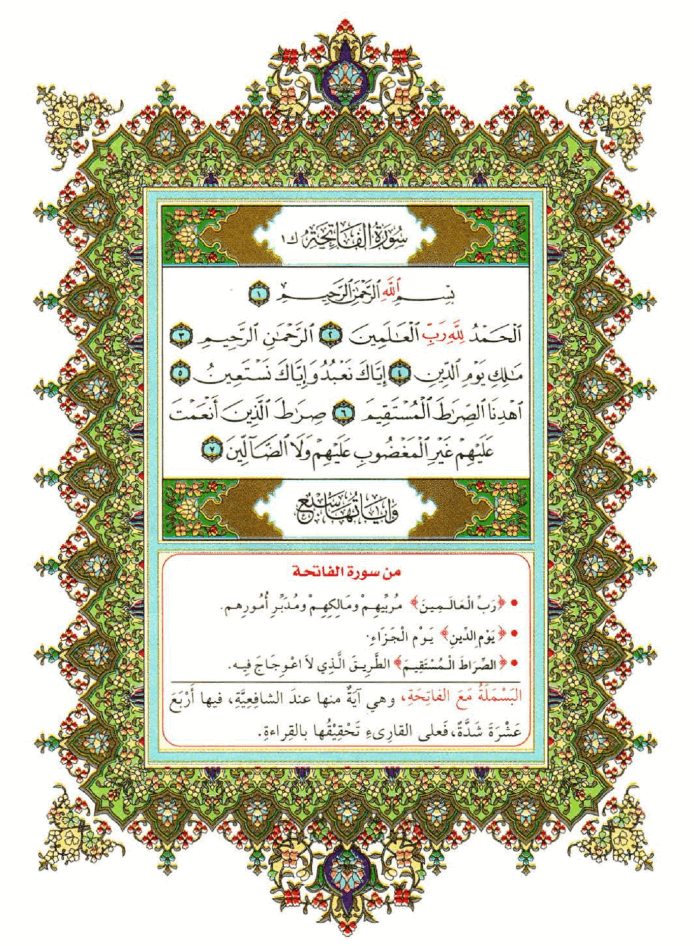 سُورَةُ الفَاتِحَةِ ك ١
بِسْمِ ٱللَّهِ ٱلرَّحْمَٰنِ ٱلرَّحِيمِ ١
ٱلْحَمْدُ لِلَّهِ رَبِّ ٱلْعَٰلَمِينَ ٢ ٱلرَّحْمَٰنِ ٱلرَّحِيمِ ٣
مَٰلِكِ يَوْمِ ٱلدِّينِ ٤ إِيَّاكَ نَعْبُدُ وَإِيَّاكَ نَسْتَعِينُ ٥
ٱهْدِنَا ٱلصِّرَٰطَ ٱلْمُسْتَقِيمَ ٦ صِرَٰطَ ٱلَّذِينَ أَنْعَمْتَ
عَلَيْهِمْ غَيْرِ ٱلْمَغْضُوبِ عَلَيْهِمْ وَلَا ٱلضَّآلِّينَ ٧
وَآيَاتُهَا سَبْعٌ
من سورة الفاتحة
• ﴿رَبِّ الْعَالَـمِينَ﴾ مُرَبِّيهِمْ ومَالِكِهِمْ ومُدَبِّرِ أُمُورِهِم.
• ﴿يَوْمِ الدِّينِ﴾ يَوْمِ الْجَزَاءِ.
• ﴿الصِّرَاطَ الْـمُسْتَقِيمَ﴾ الطَّرِيقَ الَّذِي لاَ اعْوِجَاجَ فِيهِ.
البَسْمَلَةُ مَعَ الفَاتِحَةِ، وهي آيَةٌ منها عندَ الشافِعِيَّةِ، فيها أَرْبَعَ
عَشْرَةَ شَدَّةً، فَعلى القارِىءِ تَحْقِيْقُها بالقِراءةِ.